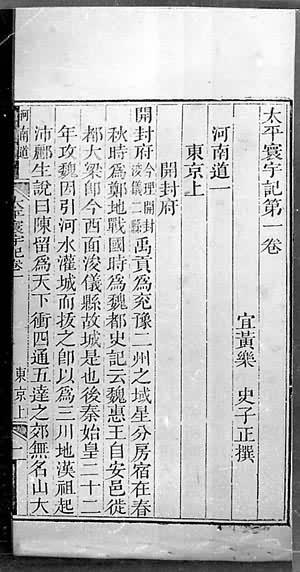 太平寰宇記第一卷
宜黃樂 史子正撰
河南道一
東京上
開封府
開封府今理開封浚儀二縣禹貢爲兖豫二州之域星分房宿在春
秋時爲鄭地戰國時爲魏都史記云魏惠王自安邑徙
都大梁卽今西面浚儀縣故城是也後秦始皇二十二
年攻魏因引河水灌城而拔之卽以爲三川地漢祖起
沛酈生說曰陳留爲天下衝四通五達之郊無名山大
河南道
太平寰宇記卷一
東京上
一